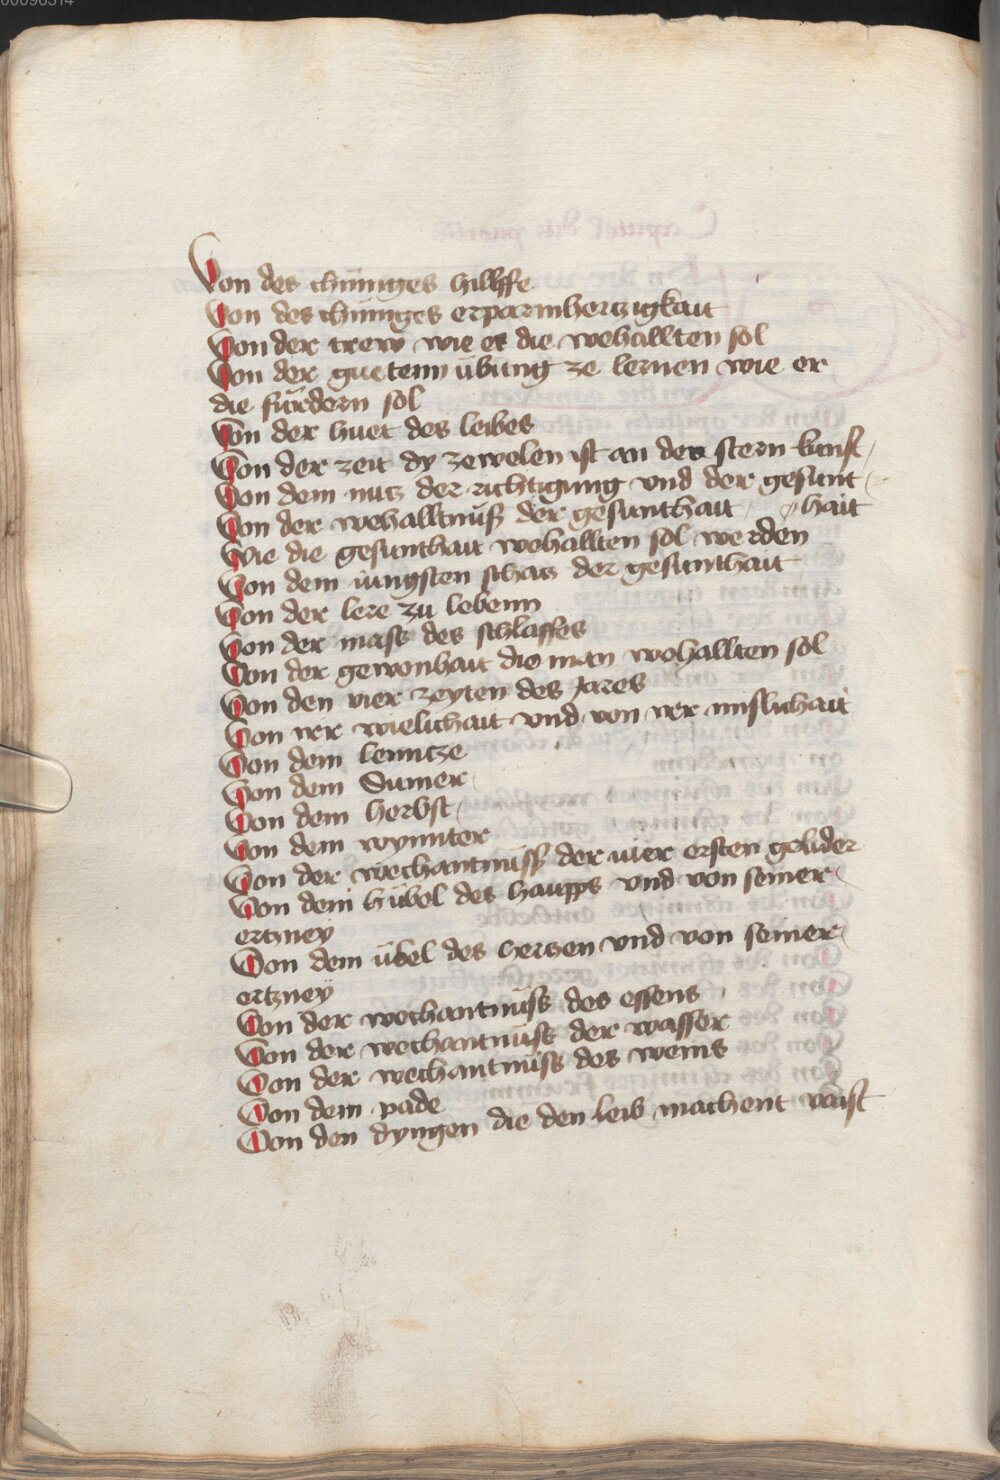 Von des chüniges hillffe
Von des chüniges erparmhertzigkait
Von der trew wie er die wehallten sol
Von der guetenn übung ze lernen wie er
die fürdern sol
Von der huet des leibes
Von der zeit dy ze welen ist an der stern kunst
Von dem nutz der richtigung vnd der gesunt
Von der wehalltnuß der gesunthait hait
Wie die gesunthait wehallten sol werden
Von dem iüngsten schatz der gesunthait
Von der lere zu lebenn
Von der mass des schlaffes
Von der gewonhait die man wehallten sol
Von den vier zeyten des Jares
Von irer wielichait vnd von irer mislichait
Von dem lenntze
Von dem Sumer
Von dem herbst
Von dem wynnter
Von der wechantnuss der vier ersten gelider
Von dem hübel des haupps vnd von seiner
ertzney
Von dem übel des hertzen vnd von seiner
ertzney
Von der wechantnüss des essens
Von der wechantnüss der wasser
Von der wechantnüss des weins
Von dem pade
Von den dyngen die den leib machent vaist